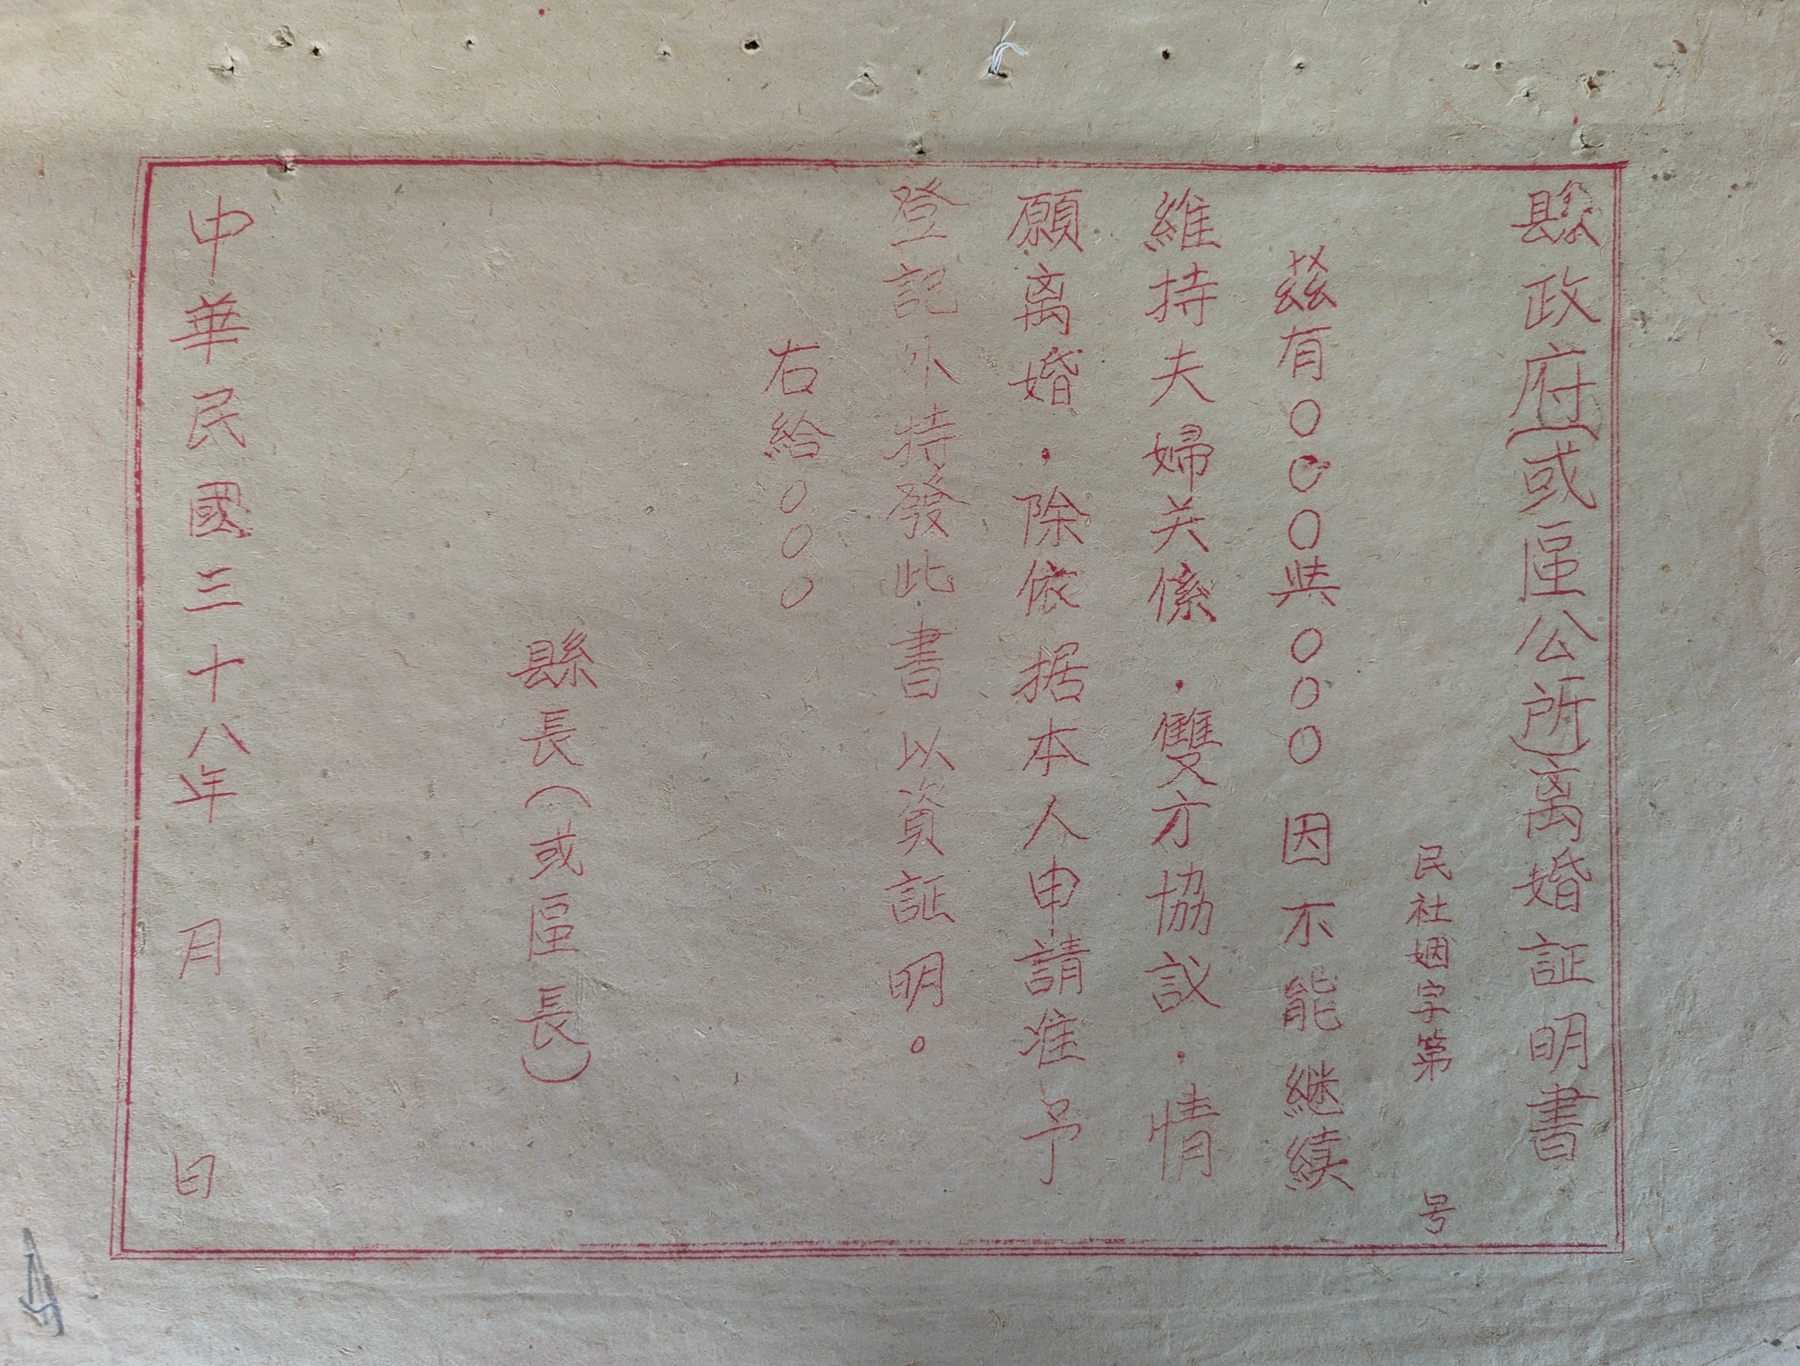 縣政府(或區公所)离婚証明書
民社姻字第　　号
茲有〇〇〇與〇〇〇因不能継續
維持夫婦关係．雙方協议．情
願离婚．除依据本人申請准予
登記外特發此書以資証明。
右給〇〇〇
縣長(或區長)
中華民國三十八年　月　日